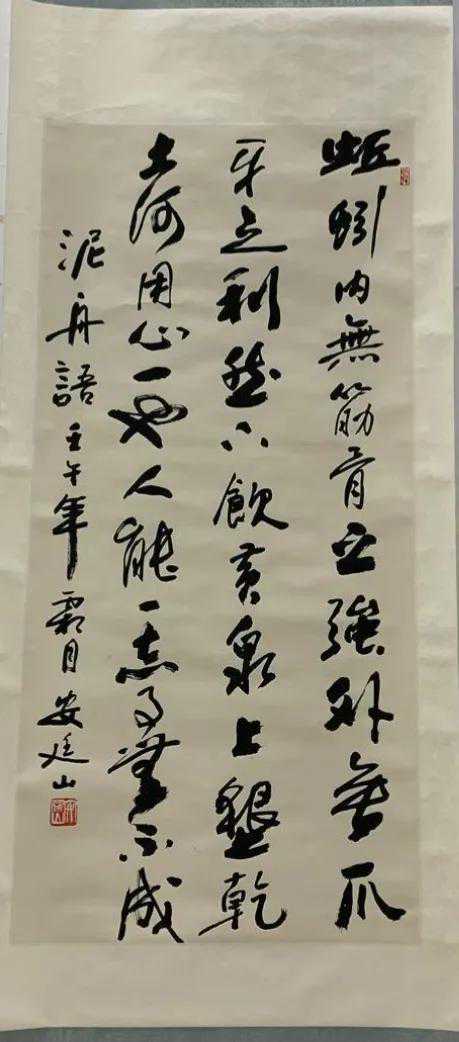 蚯蚓内無筋骨之強外無爪
牙之利然下飲黄泉上墾乾
土何用心一也人能一志事無不成
泥舟語壬午年霜月安廷山